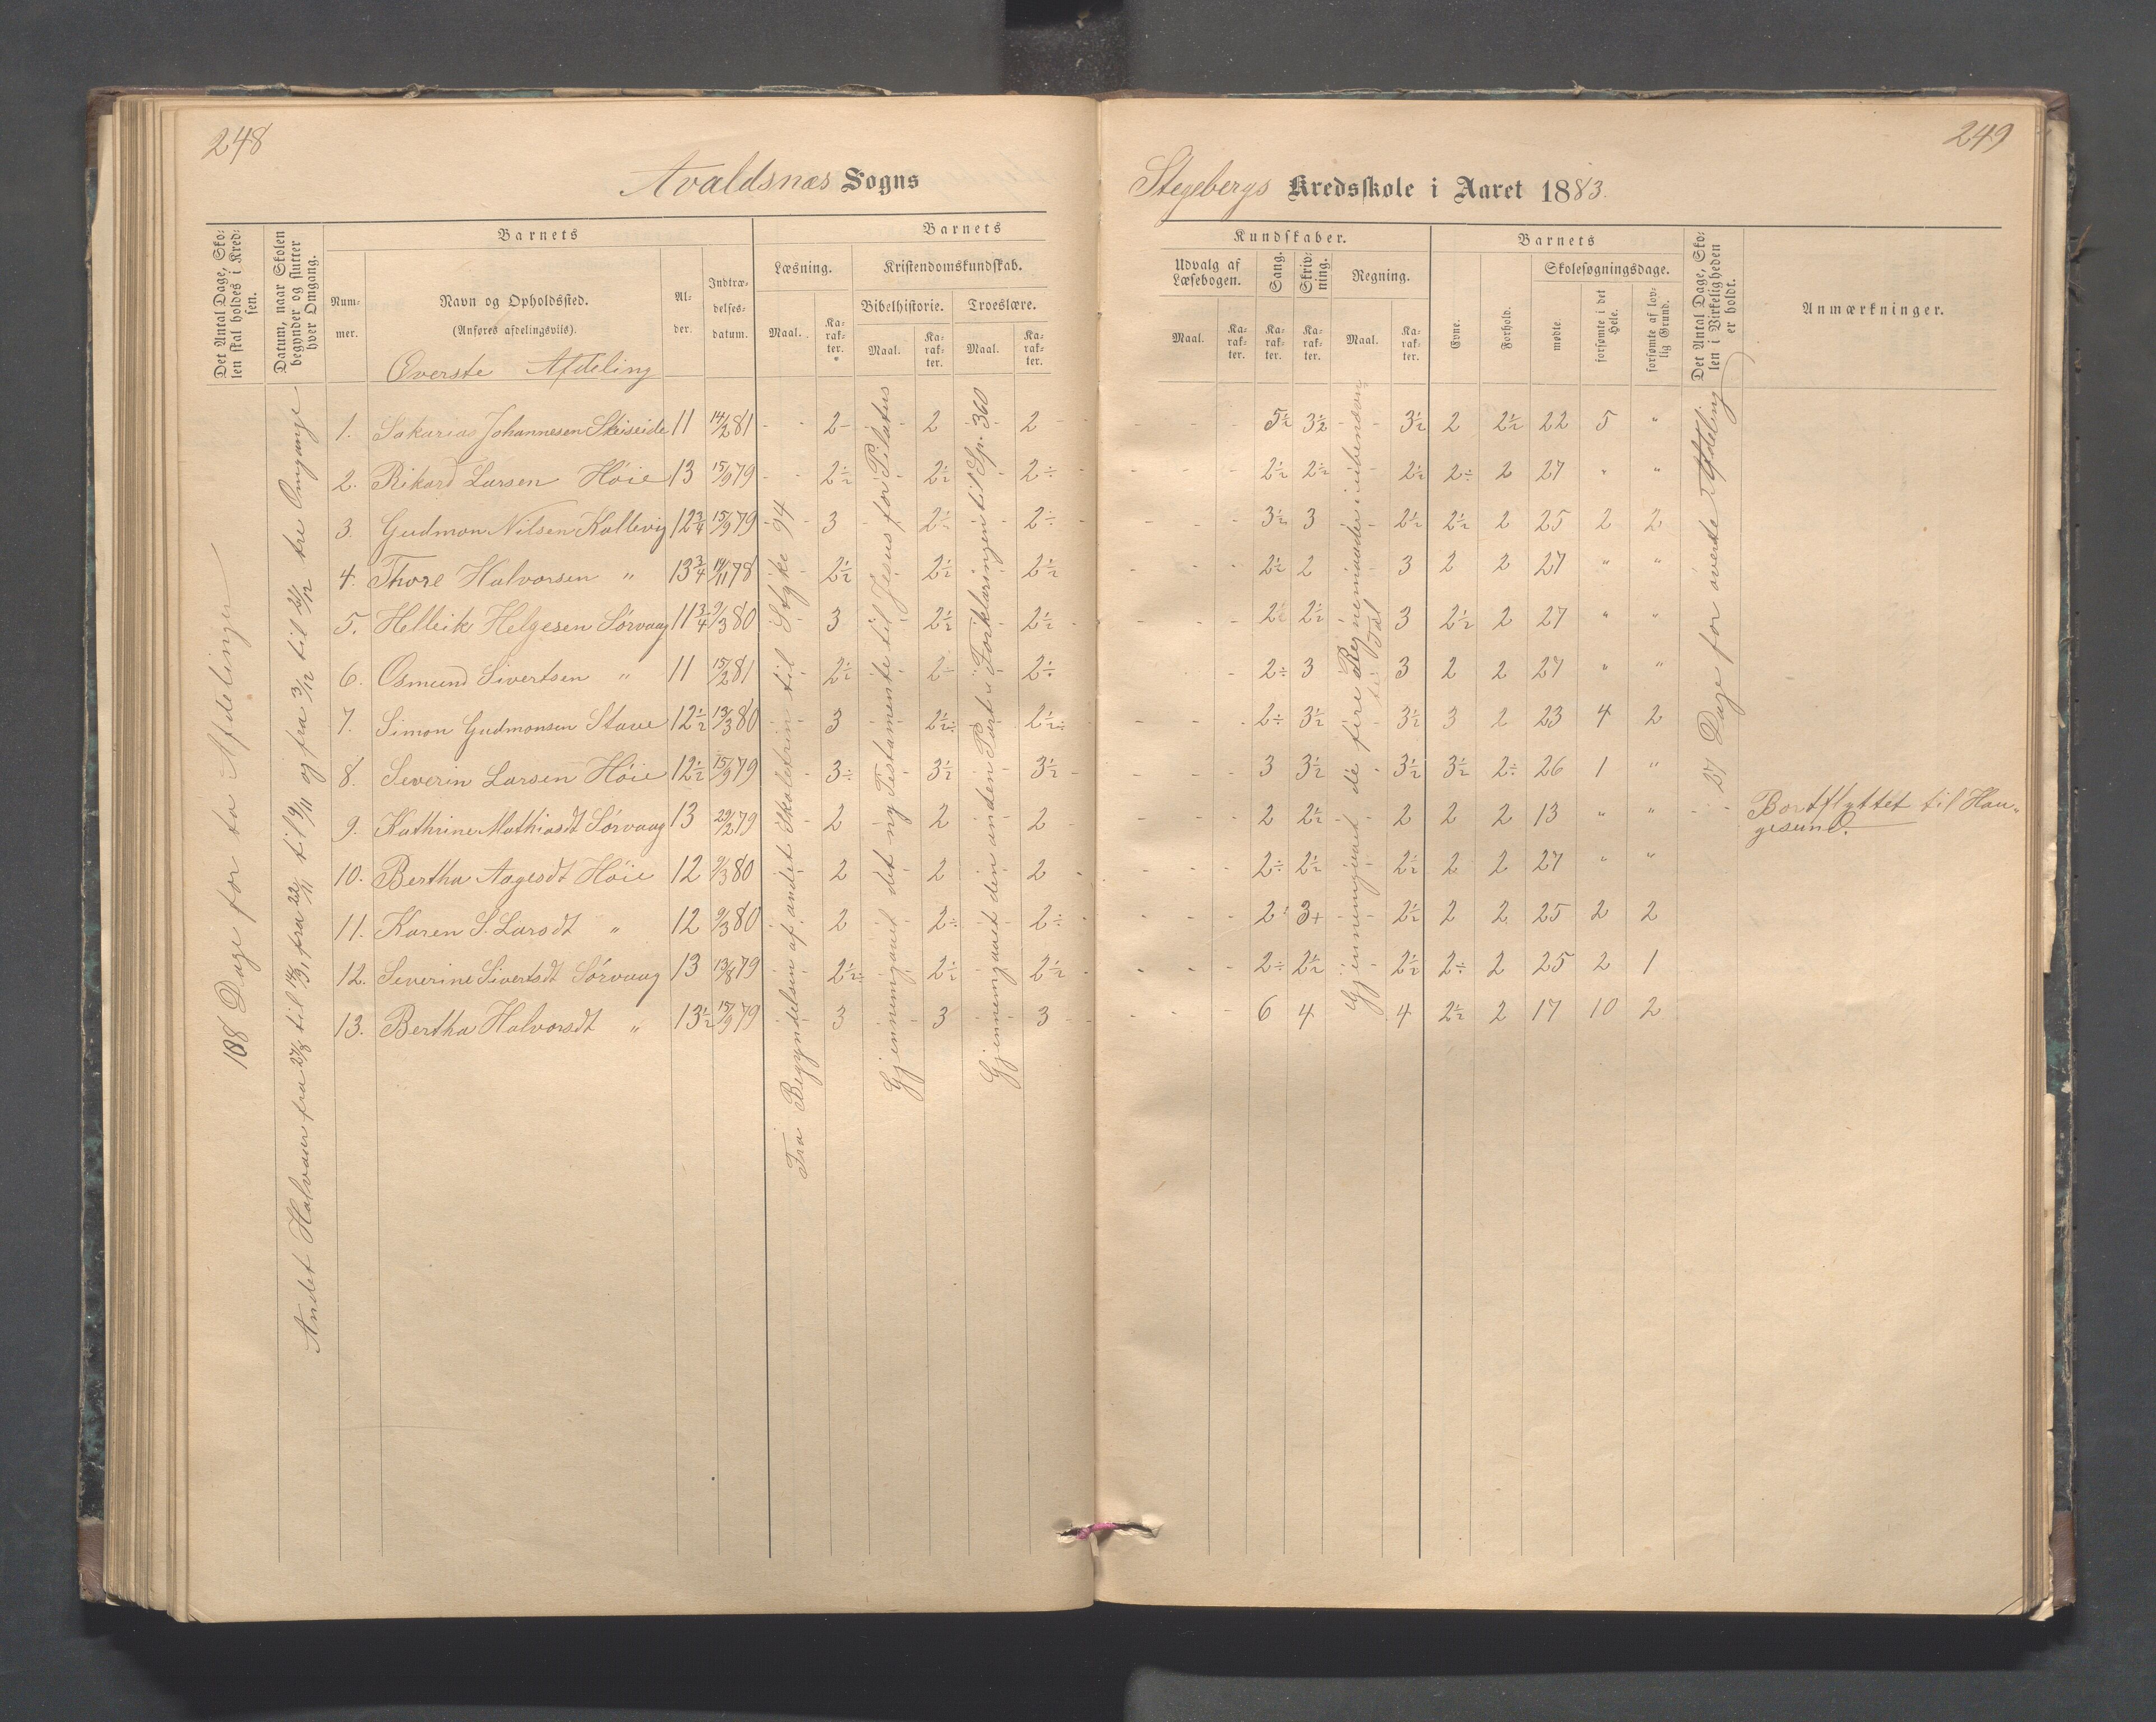 248
Avaldsnæs Sogns
Det Antal Dage, Sko-
len skal holdes i Kred-
sen.
Datum, naar Skolen
begynder og slutter
hver Omgang.
Barnets
Num-
mer.
Navn og Opholdssted.
(Anføres afdelingsvis).
Al-
der.
Indtræ-
delses-
datum.
Barnets
Læsning.
Maal.
Ka-
rak-
ter.
Kristendomskundskab.
Bibelhistorie.
Maal.
Ka-
rak-
ter.
Troeslære.
Maal.
Ka-
rak-
ter.
Øverste Afdeling
108 Dage for to Afdelinger
Andet Halvaar fra 27/8 til fra til og fra 3/12 til 21/12 tre Omgange
Fra Begyndelsen af andet Skoletrin til Stykke 94
Gjennemgaaet det ny Testamente til Jesus for Pilatus
Gjennemgaaet den anden Part i Forklaringen til Sp. 360
1. Sakarias Johannesen Skeiseide 11 14/2 81 2 2 2
2. Rikard Larsen Höie 13 15/9 79 2½ 2½ 2÷
3. Gudmon Nilsen Kallevig 12¾ 15/9 79 3 2½ 2÷
4. Thore Halvorsen " 13¾ 14/11 78 2½ 2½ 2½
5. Helleik Helgesen Sörvaag 11¾ 9/3 80 3 2½ 2½
6. Osmund Sivertsen " 11 15/2 81 2½ 2÷ 2÷
7. Simon Gudmonsen Stave 12½ 13/3 80 3 2½÷ 2½÷
8. Severin Larsen Höie 12½ 15/9 79 3÷ 3½ 3½
9. Kathrine Mathiasdt Sörvaag 13 29/2 79 2 2 2
10. Bertha Aagesdt Höie 12 9/3 80 2 2 2
11. Karen S. Larsdt " 12 9/3 80 2 2÷ 2÷
12. Severine Sivertsdt Sörvaag 13 13/8 79 2½÷ 2½ 2½
13. Bertha Halvorsdt " 13½ 15/9 79 3 3 3
249
Stegebergs Kredsskole i Aaret 1883.
Kundskaber.
Udvalg af
Læsebogen.
Maal.
Ka-
rak-
ter.
Sang.
Ka-
rak-
ter.
Skriv-
ning.
Ka-
rak-
ter.
Regning.
Maal.
Ka-
rak-
ter.
Barnets
Evne.
Forhold.
Skolesøgningsdage.
mødte.
forsømte i det
Hele.
forsømte af lov-
lig Grund.
Det Antal Dage, Sko-
len i Virkeligheden
er holdt.
Anmærkninger.
Gjennemgaaet de fire Regnemaader i ubenævn-
te Tal
27 Dage for øverste Afdeling
5½ 3½ 3½ 2 2½ 22 5 "
2½ 2½ 2½ 2÷ 2 27 " "
3½ 3 2½ 2½ 2 25 2 2
2½ 2 3 2 2 27 " "
2½ 2½ 3 2½ 2 27 " "
2÷ 3 3 2 2 27 " "
2÷ 3½ 3½ 3 2 23 4 2
3 3½ 3½ 3½ 2÷ 26 1 "
2 2½ 2 2 2 13 " " Bortflyttet til Hau-
gesund.
2÷ 2½ 2½ 2 2 27 " "
2÷ 3+ 2½ 2 2 25 2 2
2÷ 2½ 2½ 2÷ 2 25 2 1
6 4 4 2½ 2 17 10 2